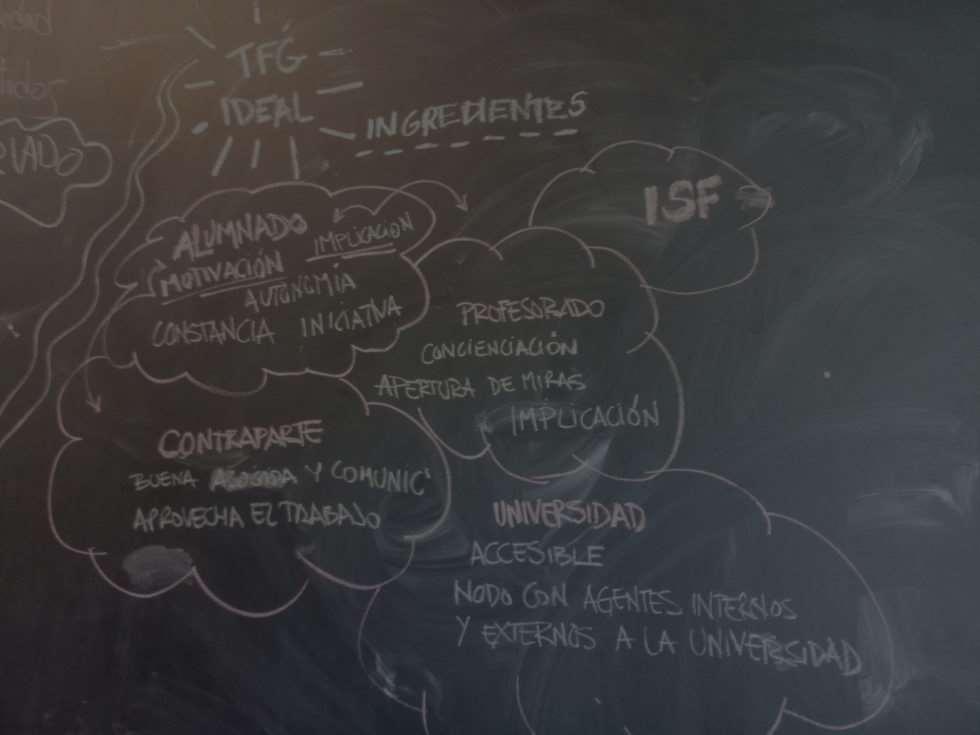 TFG
IDEAL
INGREDIENTES
ISF
ALUMNADO
IMPLICACIÓN
MOTIVACIÓN
AUTONOMÍA
CONSTANCIA INICIATIVA
PROFESORADO
CONCIENCIACIÓN
APERTURA DE MIRAS
IMPLICACIÓN
CONTRAPARTE
BUENA ACOGIDA Y COMUNIC'
APROVECHA EL TRABAJO
UNIVERSIDAD
ACCESIBLE
NODO CON AGENTES INTERNOS
Y EXTERNOS A LA UNIVERSIDAD